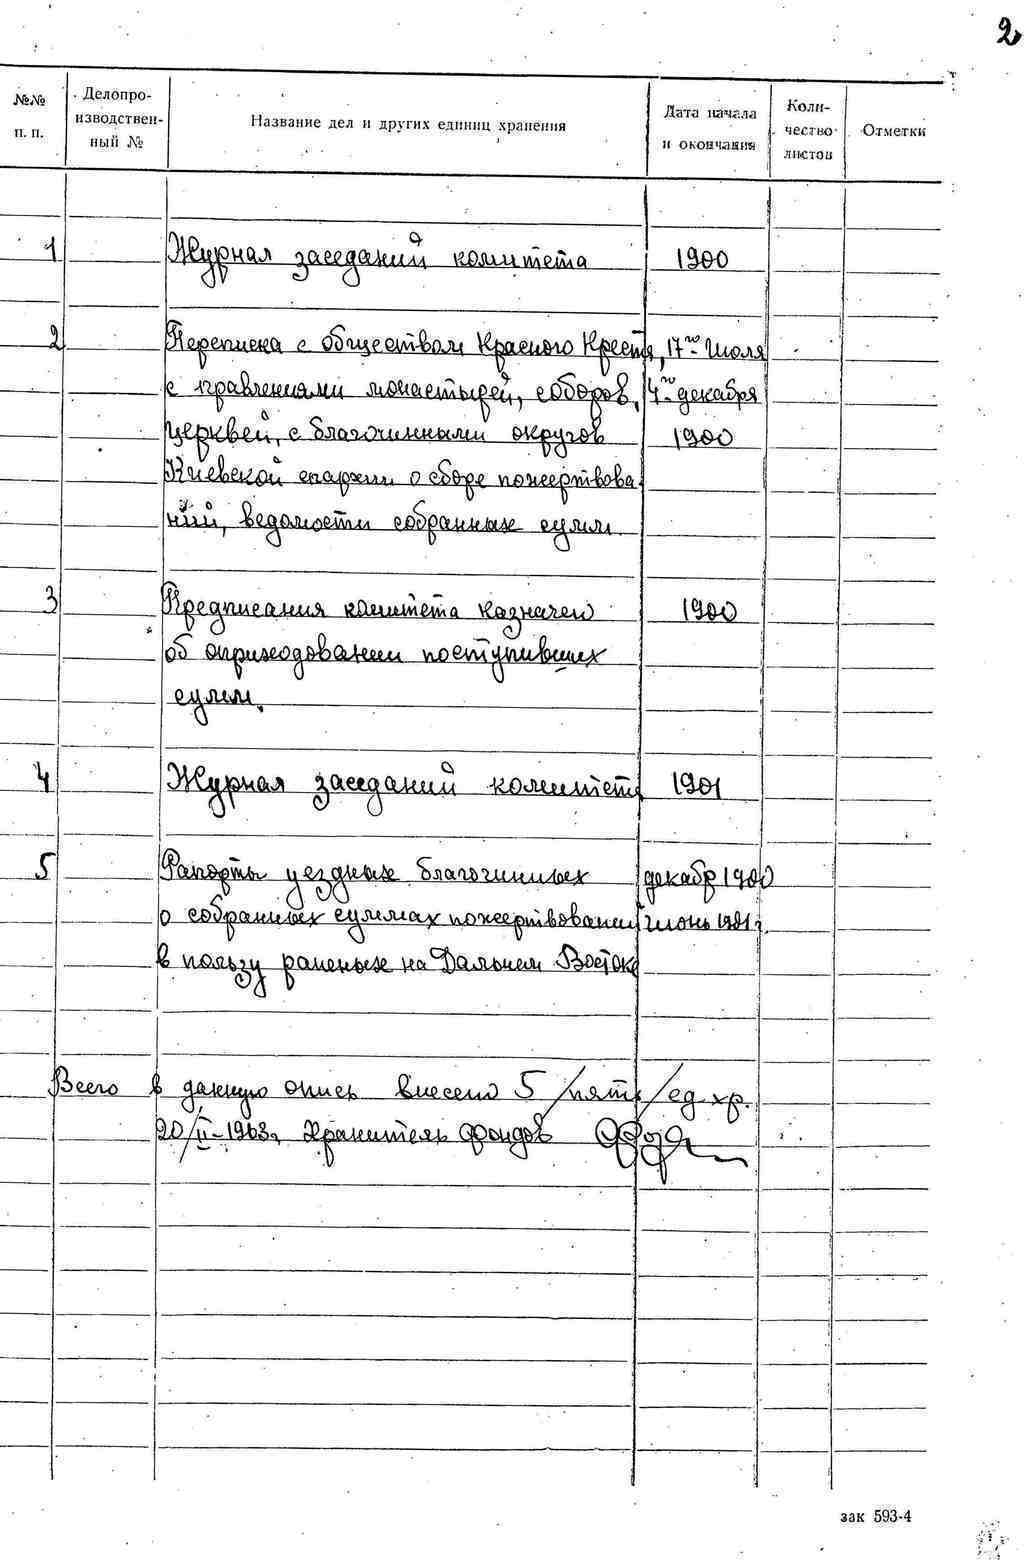 2
№№ п. п. Делопроизводственный № Название дел и других единиц хранения Дата начала и окончания Количество листов Отметки
1 Журнал заседаний комитета 1900
2 Переписка с обществом Красного Креста, 17го Июля
с правлениями монастырей, соборов, 4го декабря
церквей, с благочинными округов 1900
Киевской епархии о сборе пожертвова
ний, ведомости собранных сумм.
3 Предписания комитета казначею 1900
об оприходовании поступивших
сумм.
4 Журнал заседаний комитета 1901
5 Рапорты уездных благочинных декабр 1900
о собранных суммах пожертвований июнь 1901 г.
в пользу раненых на Дальнем Востоке
Всего в данную опись внесено 5 /пять/ ед. хр.
20/II-1963г. Хранитель фондов
зак 593-4